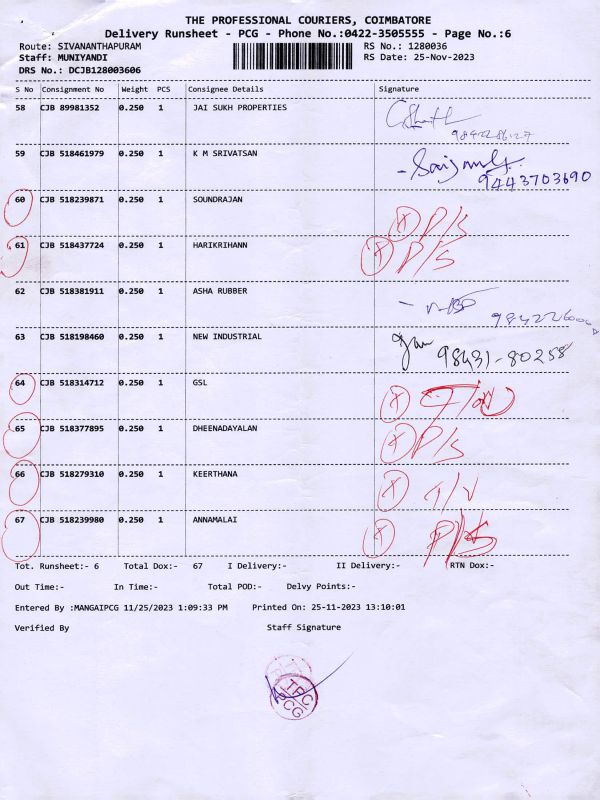 THE PROFESSIONAL COURIERS, COIMBATORE
Delivery Runsheet - PCG - Phone No.:0422-3505555 - Page No.:6
Route: SIVANANTHAPURAM RS No.: 1280036
Staff: MUNIYANDI RS Date: 25-Nov-2023
DRS No.: DCJB128003606
S No Consignment No Weight PCS Consignee Details Signature
58 CJB 89981352 0.250 1 JAI SUKH PROPERTIES
59 CJB 518461979 0.250 1 K M SRIVATSAN
9443703690
60 CJB 518239871 0.250 1 SOUNDRAJAN
P/S
61 CJB 518437724 0.250 1 HARIKRIHANN
P/S
62 CJB 518381911 0.250 1 ASHA RUBBER
63 CJB 518198460 0.250 1 NEW INDUSTRIAL
98431-80258
64 CJB 518314712 0.250 1 GSL
65 CJB 518377895 0.250 1 DHEENADAYALAN
P/S
66 CJB 518279310 0.250 1 KEERTHANA
67 CJB 518239980 0.250 1 ANNAMALAI
P/S
Tot. Runsheet:- 6 Total Dox:- 67 I Delivery:- II Delivery:- RTN Dox:-
Out Time:- In Time:- Total POD:- Delvy Points:-
Entered By :MANGAIPCG 11/25/2023 1:09:33 PM Printed On: 25-11-2023 13:10:01
Verified By Staff Signature
TPC
PCG